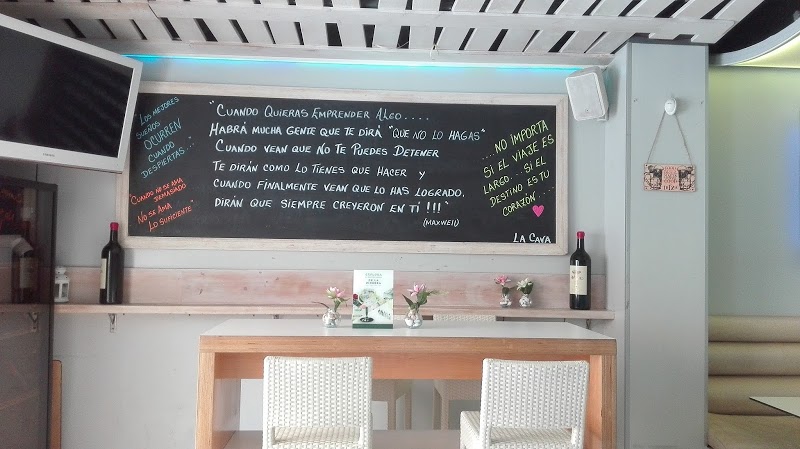 "Los mejores
sueños
ocurren
cuando
despiertas..."
"Cuando no se ama
demasiado
No se ama
lo suficiente"
"Cuando Quieras Emprender Algo....
Habrá mucha gente que te dirá "que no lo hagas"
Cuando vean que no te puedes detener
Te dirán como lo tienes que hacer y
cuando finalmente vean que lo has logrado,
dirán que siempre creyeron en ti !!!"
(Maxwell)
...No importa
si el viaje es
largo... si el
destino es tu
corazón....
La Cava